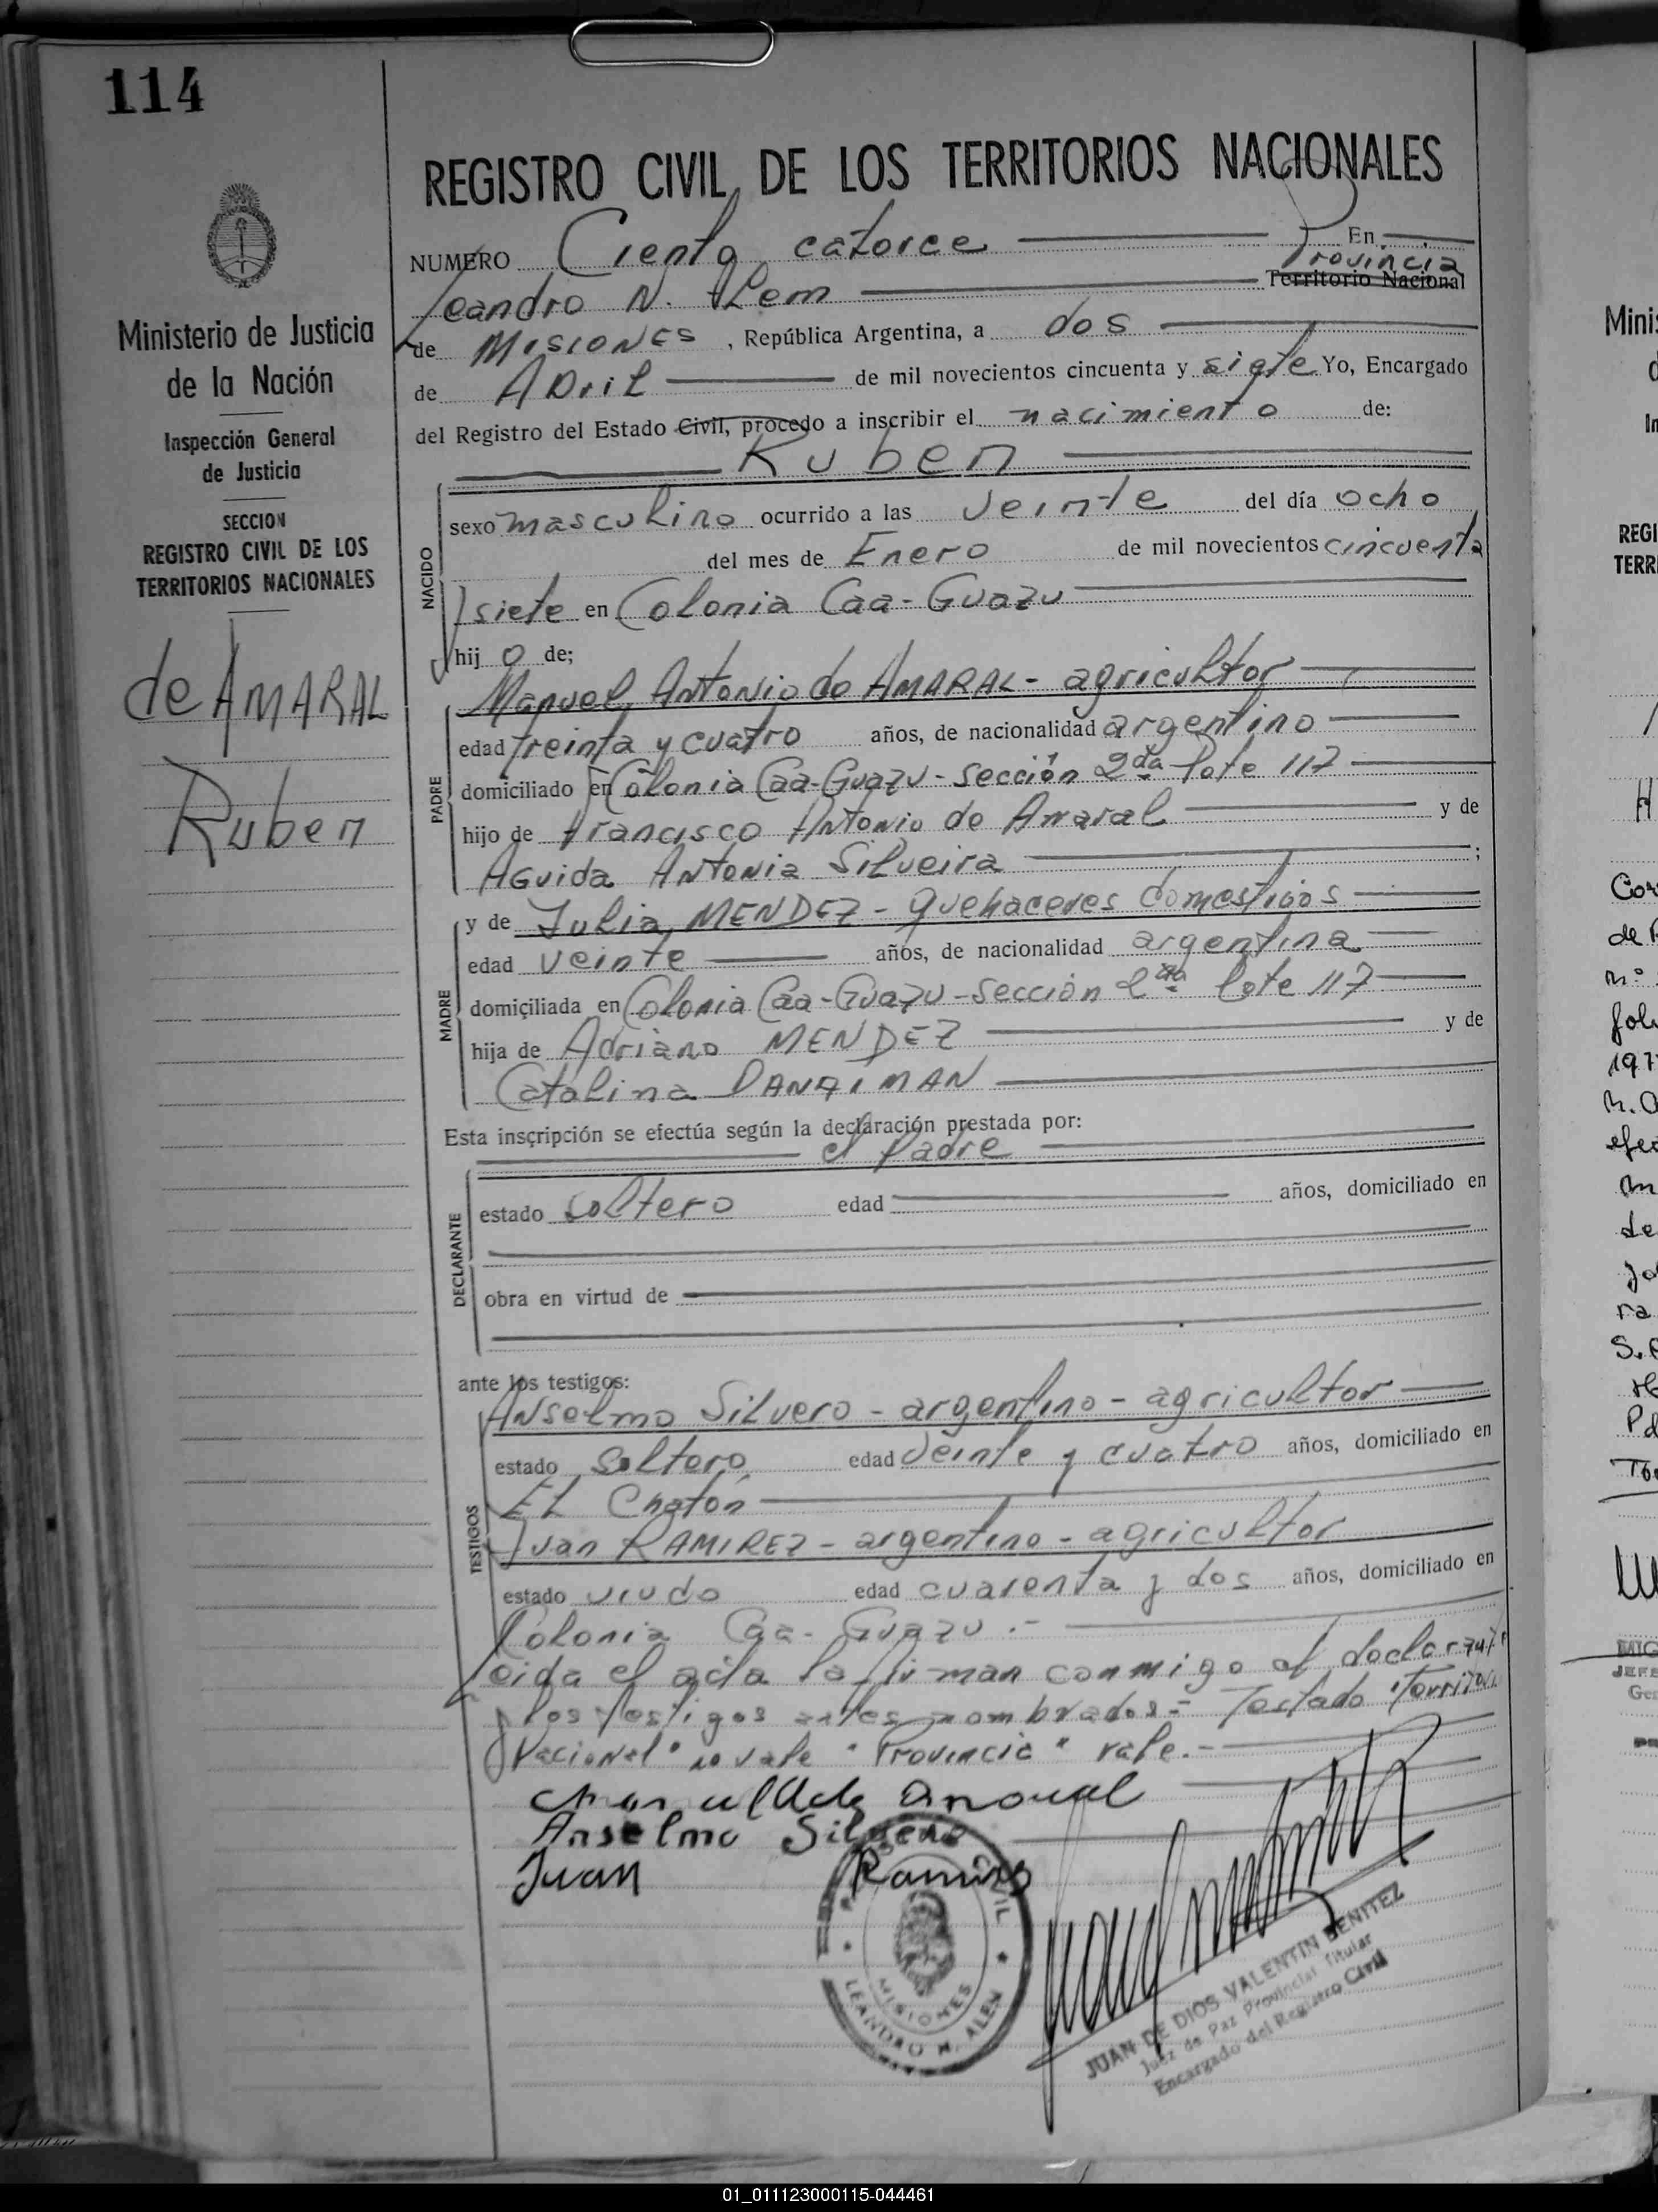 114
REGISTRO CIVIL DE LOS TERRITORIOS NACIONALES
Ministerio de Justicia
de la Nación
Inspección General
de Justicia
SECCION
REGISTRO CIVIL DE LOS
TERRITORIOS NACIONALES
de AMARAL
Ruben
NUMERO Ciento catorce En
Provincia
Leandro N. Alem Territorio Nacional
de MISIONES, República Argentina, a dos
de Abril de mil novecientos cincuenta y siete Yo, Encargado
del Registro del Estado Civil, procedo a inscribir el nacimiento de:
Ruben
NACIDO
sexo masculino ocurrido a las veinte del día ocho
del mes de Enero de mil novecientos cincuenta
y siete en Colonia Caa-Guazu
hijo de;
PADRE
Manuel Antonio de AMARAL - agricultor
edad treinta y cuatro años, de nacionalidad argentino
domiciliado en Colonia Caa-Guazu - Sección 2da lote 117
hijo de Francisco Antonio de Amaral y de
Aguida Antonia Silveira ;
MADRE
y de Julia MENDEZ - quehaceres domesticos
edad veinte años, de nacionalidad argentina
domiciliada en Colonia Caa-Guazu - Sección 2da lote 117
hija de Adriano MENDEZ y de
Catalina
Esta inscripción se efectúa según la declaración prestada por:
el Padre
DECLARANTE
estado soltero edad años, domiciliado en
obra en virtud de
ante los testigos:
TESTIGOS
Anselmo Silvero - argentino - agricultor
estado soltero edad veinte y cuatro años, domiciliado en
El Chatón
Juan RAMIREZ - argentino - agricultor
estado viudo edad cuarenta y dos años, domiciliado en
Colonia Caa-Guazu.-
Leida el acta la firman conmigo el declarante
y los testigos antes nombrados= Testado "Territorio
Nacional" no vale "Provincia" vale.-
Anselmo Silvero
Juan Ramirez
CIVIL
MISIONES
LEANDRO N. ALEM
JUAN DE DIOS VALENTIN BENITEZ
Juez de Paz Provincial Titular
Encargado del Registro Civil
01_011123000115-044461